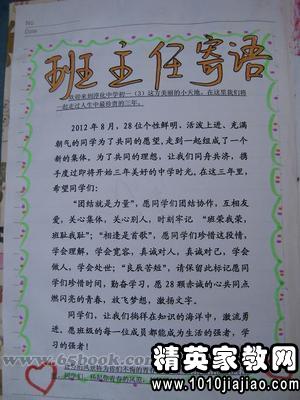 No
Date
班主任寄语
欢迎来到淳化中学初一（3）这方美丽的小天地。在这里我们将
一起走过人生中最珍贵的三年。
2012年8月，28位个性鲜明、活泼上进、充满
朝气的同学为了共同的愿望，走到一起组成了一个
新的集体。为了共同的理想，让我们同舟共济，携
手度过即将开始三年美好的中学时光。在这三年里，
希望同学们：
“团结就是力量”，愿同学们团结协作，互相友
爱，关心集体，关心别人，时刻牢记 “班荣我荣，
班耻我耻”；“相逢是首歌”，愿同学们珍惜这段情，
学会理解，学会宽容，真诚对人，真诚对己，学会
做人，学会处世；“良辰苦短”，请保留此标记愿同
学们珍惜时间，勤奋学习，愿 28 颗赤诚的心共同点
燃闪亮的青春，放飞梦想，激扬文字。
同学们，让我们徜徉在知识的海洋中，激流勇
进。愿班级的每一位成员都能成为生活的强者，学
习的强者！
www.65book.com
精英家教网
www.1010jiajiao.com